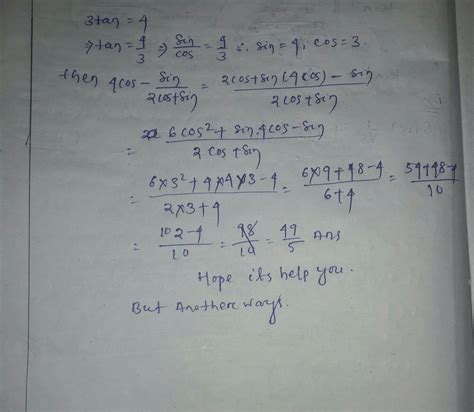 3tan = 4
⇒ tan = 4/3 ⇒ sin/cos = 4/3 ∴ sin = 4, cos = 3.
then 4cos - sin/2cos+sin = 2cos+sin(4cos) - sin/2cos+sin
= 6cos² + sin.4cos-sin/2cos+sin
= 6×3² + 4×4×3-4/2×3+4 = 6×9+48-4/6+4 = 54+48-4/10
= 102-4/10 = 98/10 = 49/5 Ans
Hope its help you.
But Anothere ways.